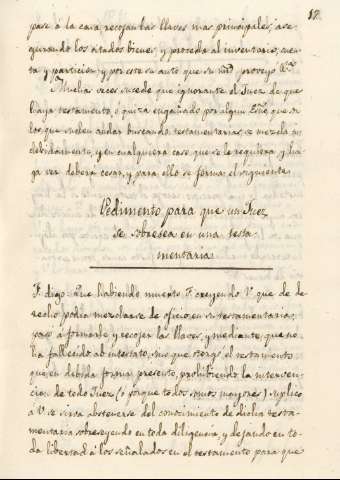 12.
pase á la casa, recojan las llaves mas principales, ase-
gurando los citados bienes, y proceda al inventario, cuen-
ta y particion, y por este su auto que su md proveyó &a.
Muchas veces sucede que ignorante el Juez de que
haya testamento, ó quiza engañado por algun Esno que de
los que suelen andar buscando testamentarias, se mezcla in-
debidamente, y en cualquiera caso que se le requiera y ha-
ga ver deberá cesar, y para ello se forma el siguiente
Pedimento para que un Juez
se sobresea en una testa-
mentaria
F. digo: Que habiendo muerto F. creyendo V. que de de-
recho podia mezclarse de oficio en su testamentaria,
pasó á formarle y recojer las llaves, y mediante, que no
ha fallecido ab intestato, sino que otorgó el testamento
que en debida forma presento, prohibiendo la interven-
cion de todo Juez (ó porque todos somos mayores) suplico
á V. se sirva abstenerse del conocimiento de dicha testa-
mentaria sobreseyendo en toda diligencia, y dejando en to-
da libertad á los señalados en el testamento para que